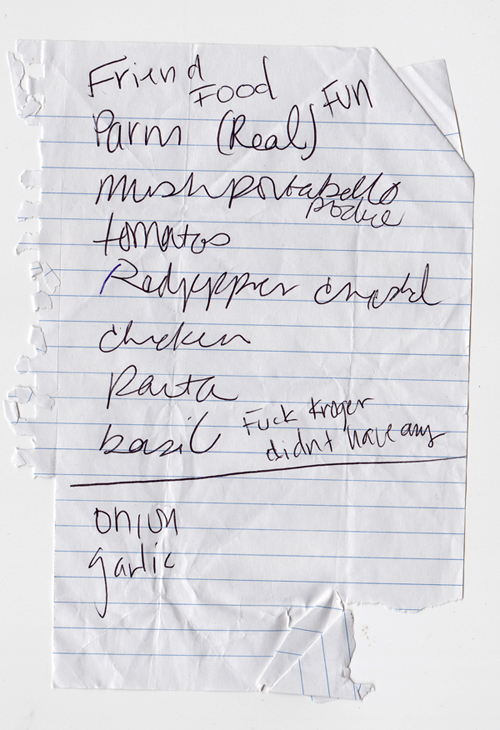 Friend
Food
Fun
Parm (Real)
mush portabello
produce
tomatos
Red pepper crushd
chicken
Pasta
basil
Fuck kroger
didnt have any
onion
garlic